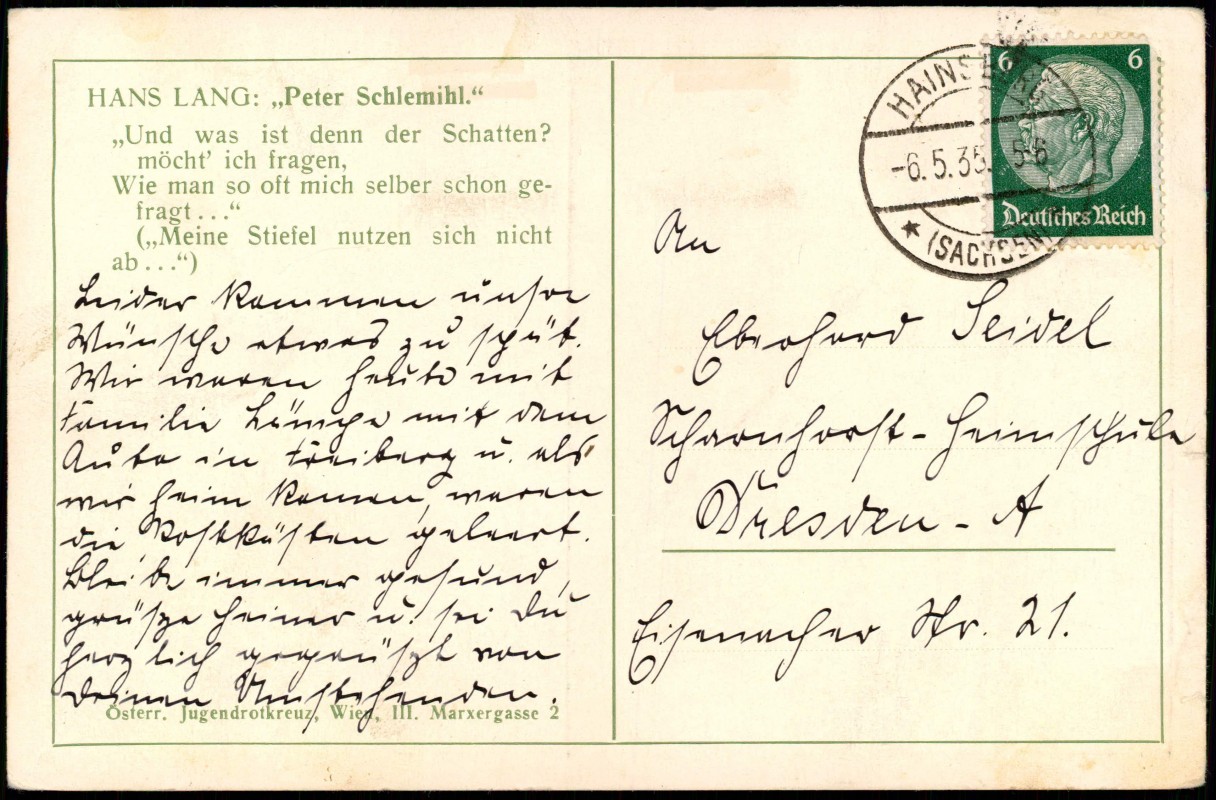 HANS LANG: „Peter Schlemihl.“
„Und was ist denn der Schatten?
möcht' ich fragen,
Wie man so oft mich selber schon ge-
fragt . . .“
(„Meine Stiefel nutzen sich nicht
ab . . .“)
Leider kommen unsre
Wünsche etwas zu spät.
Wir waren heute mit
Familie mit dem
Auto in Freiberg u. als
wir heim kamen, waren
die Postkästen geleert.
Bleibe immer gesund,
grüsze Heiner u. sei Du
herzlich gegrüszt von
Deinen Umstehenden.
Österr. Jugendrotkreuz, Wien, III. Marxergasse 2
6 6
Deutsches Reich
HAINSBERG
-6.5.35. 5-6
(SACHSEN)
An
Eberhard Seidel
Scharnhorst-Heimschule
Dresden-A
Eisenacher Str. 21.